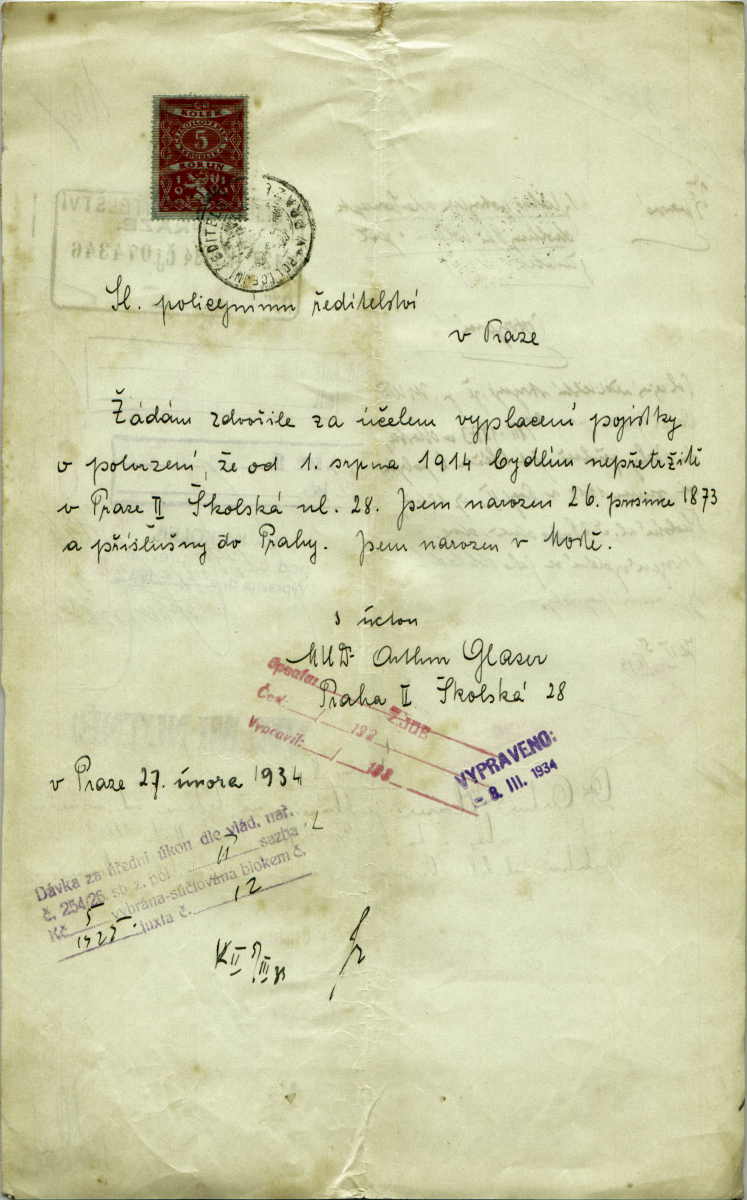 KOLEK
ČESKOSLOVENSKÁ
REPUBLIKA
5
KORUN
POLICEJNÍ ŘEDITELSTVÍ V PRAZE
Sl. policejnímu ředitelství
v Praze
Žádám zdvořile za účelem vyplacení pojistky
o potvrzení, že od 1. srpna 1914 bydlím nepřetržitě
v Praze II Školská ul. 28. Jsem narozen 26. prosince 1873
a příslušný do Prahy. Jsem narozen v Mostě.
s úctou
MUDr Arthur Glaser
Praha II Školská 28
Opsáno:
Čet: / 192
Vypravil: / 193
VYPRAVENO:
- 8. III. 1934
v Praze 27. února 1934
Dávka za úřední úkon dle vlád. nař.
č. 254/26 sb. z. pol. II sazba
Kč 5 vybrána-súčtována blokem č.
juxta č. 12